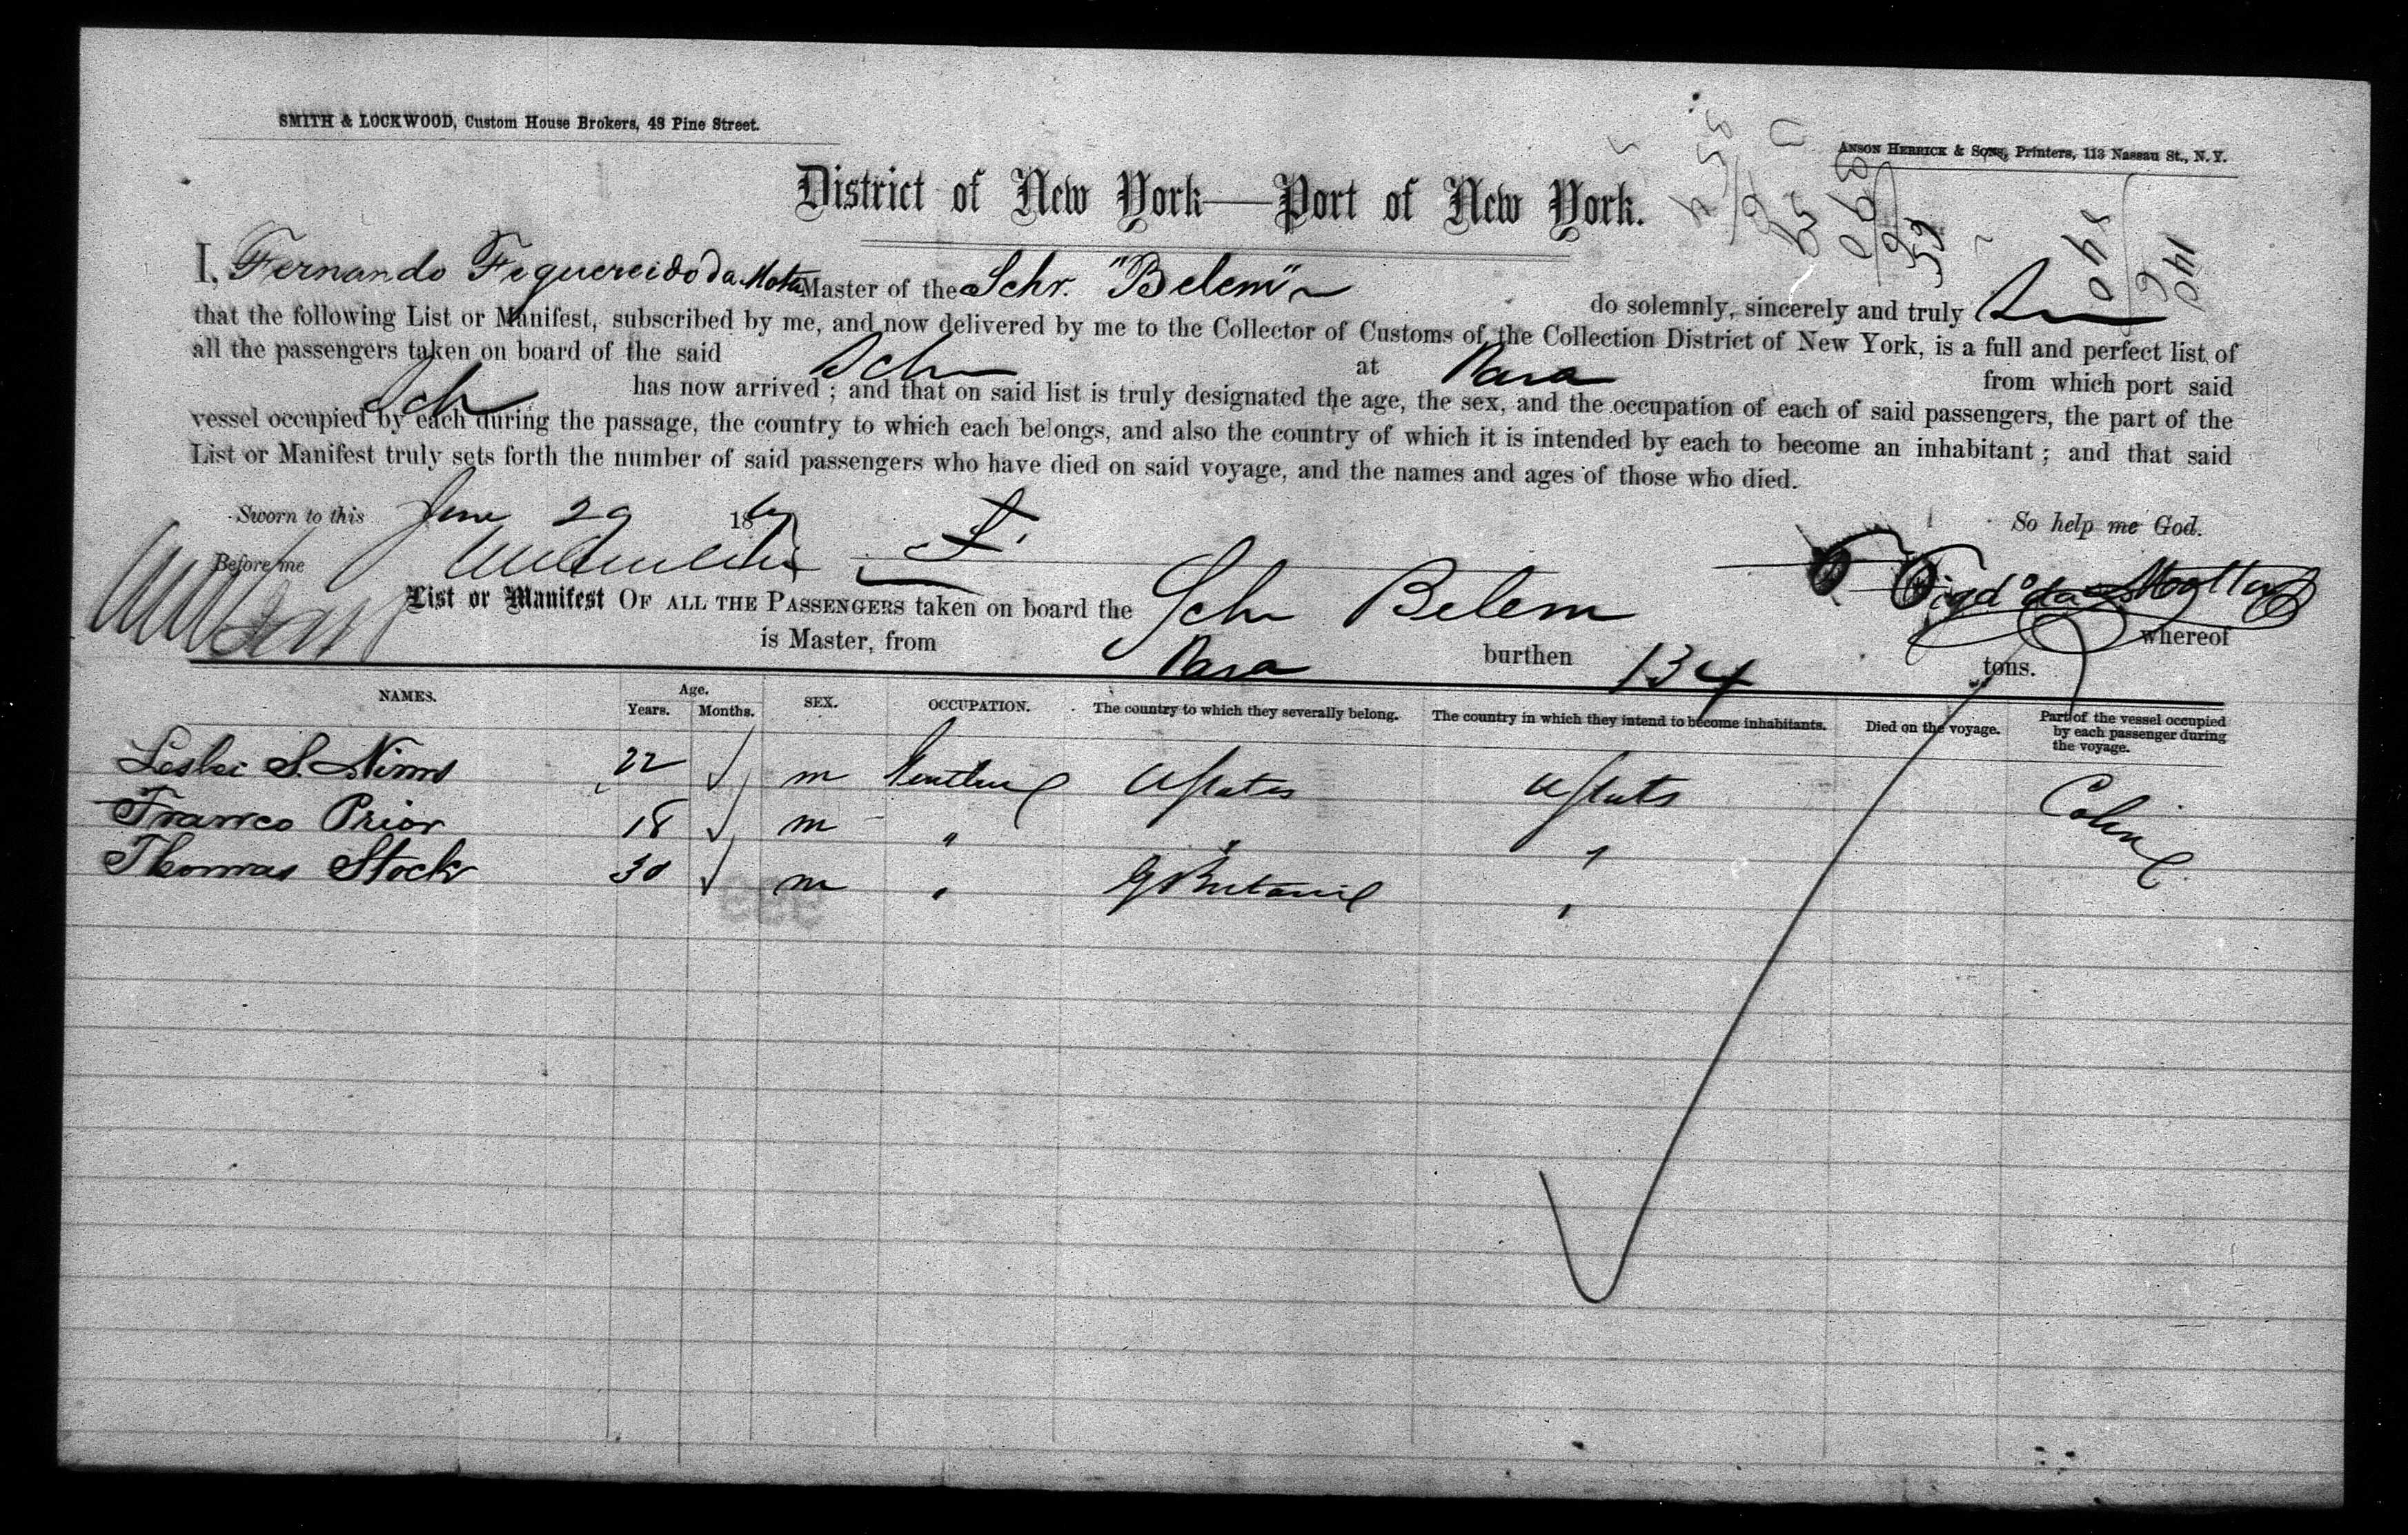 SMITH & LOCKWOOD, Custom House Brokers, 48 Pine Street.
ANSON HERRICK & SONS, Printers, 113 Nassau St., N. Y.
District of New York—Port of New York.
I, Fernando Figuereido da Mota Master of the Schr. "Belem" do solemnly, sincerely and truly
that the following List or Manifest, subscribed by me, and now delivered by me to the Collector of Customs of the Collection District of New York, is a full and perfect list of
all the passengers taken on board of the said Schr at Para from which port said
Sch has now arrived ; and that on said list is truly designated the age, the sex, and the occupation of each of said passengers, the part of the
vessel occupied by each during the passage, the country to which each belongs, and also the country of which it is intended by each to become an inhabitant ; and that said
List or Manifest truly sets forth the number of said passengers who have died on said voyage, and the names and ages of those who died.
Sworn to this June 29 186 So help me God.
Before me
List or Manifest OF ALL THE PASSENGERS taken on board the Schr Belem whereof
is Master, from Para burthen 134 tons.
NAMES. Age. Years. Months. SEX. OCCUPATION. The country to which they severally belong. The country in which they intend to become inhabitants. Died on the voyage. Part of the vessel occupied by each passenger during the voyage.
Leslie S. Nims 22 m UStates UStates Cabin
Franco Prior 18 m " " "
Thomas Stock 30 m " G Britain "